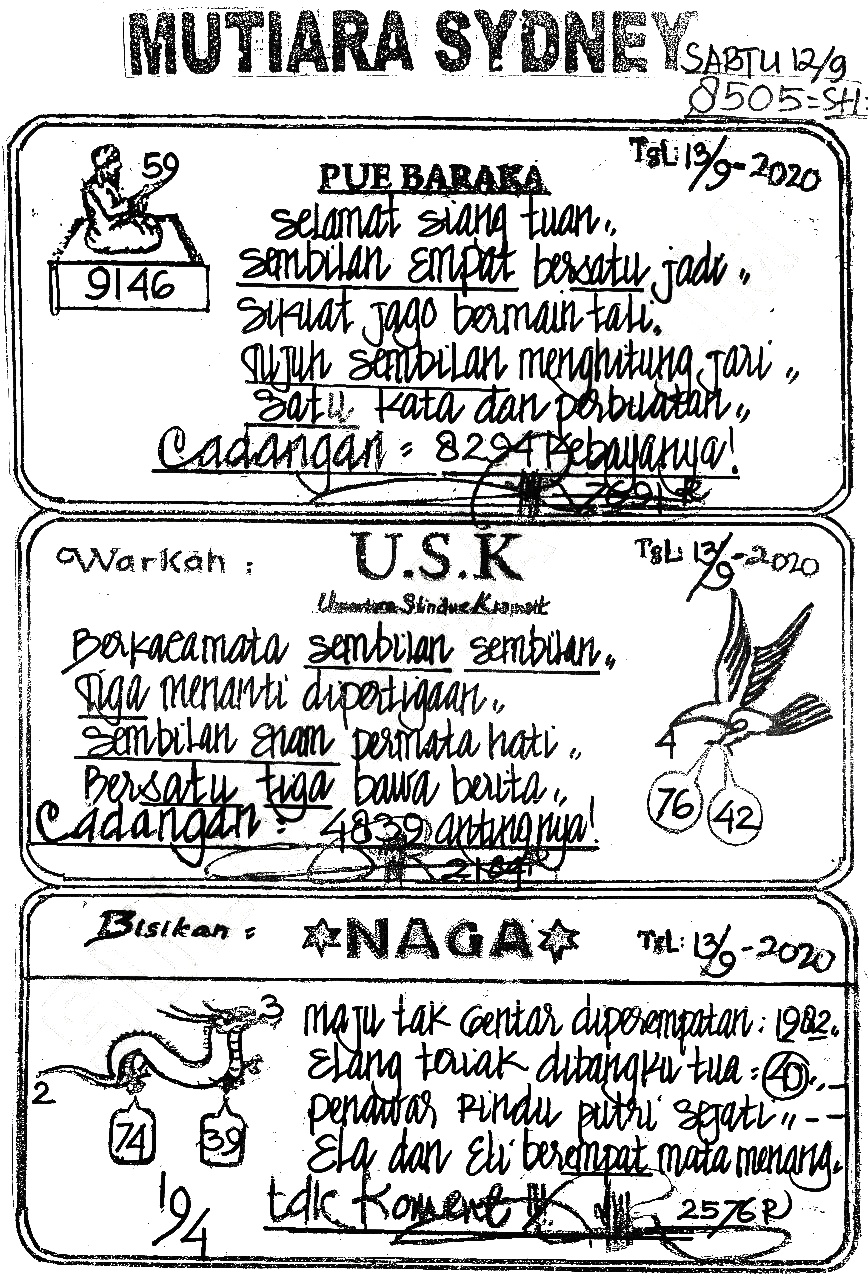 MUTIARA SYDNEY
SABTU 12/9
8505=SH=
59
9146
PUE BARAKA
TgL: 13/9-2020
Selamat siang tuan,,
Sembilan Empat bersatu jadi,,
Sikuat jago bermain tali.
Tujuh sembilan menghitung jari,,
Satu kata dan perbuatan,,
Cadangan = 8294 Kebayanya!
7691 R
Warkah :
U.S.K
TgL: 13/9-2020
Berkacamata sembilan sembilan,,
Tiga menanti dipertigaan,,
Sembilan Enam permata hati,,
Bersatu tiga bawa berita,,
Cadangan : 4839 antingnya!
2184 R
4
76
42
Bisikan :
NAGA
TgL: 13/9-2020
3
2
74
39
19/4
Maju tak Gentar diperempatan : 1982.
Elang teriak dibangku tua : 40,,--
Penawar Rindu putri sejati,,--
Ela dan Eli berempat mata menang.
tdk Koment !!!
2576 R